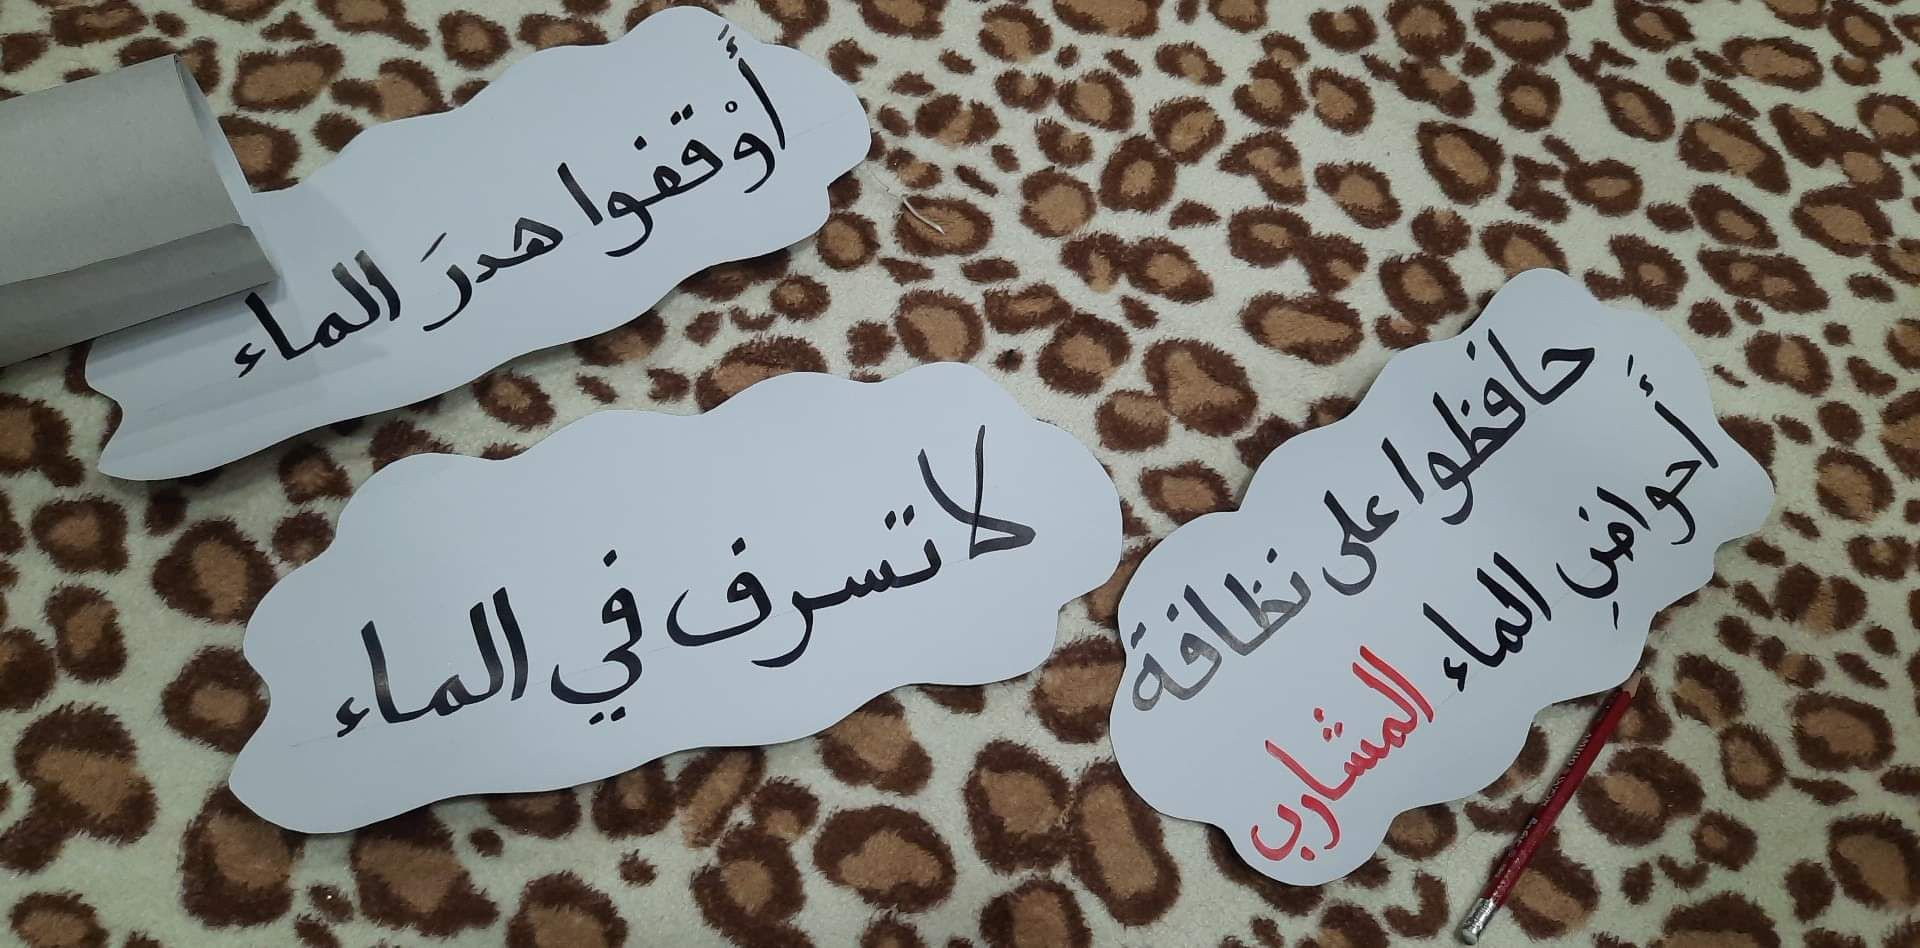 أَوْقفوا هدرَ الماء
لا تسرف في الماء
حافظوا على نظافة
أَحواضِ الماء المشارب